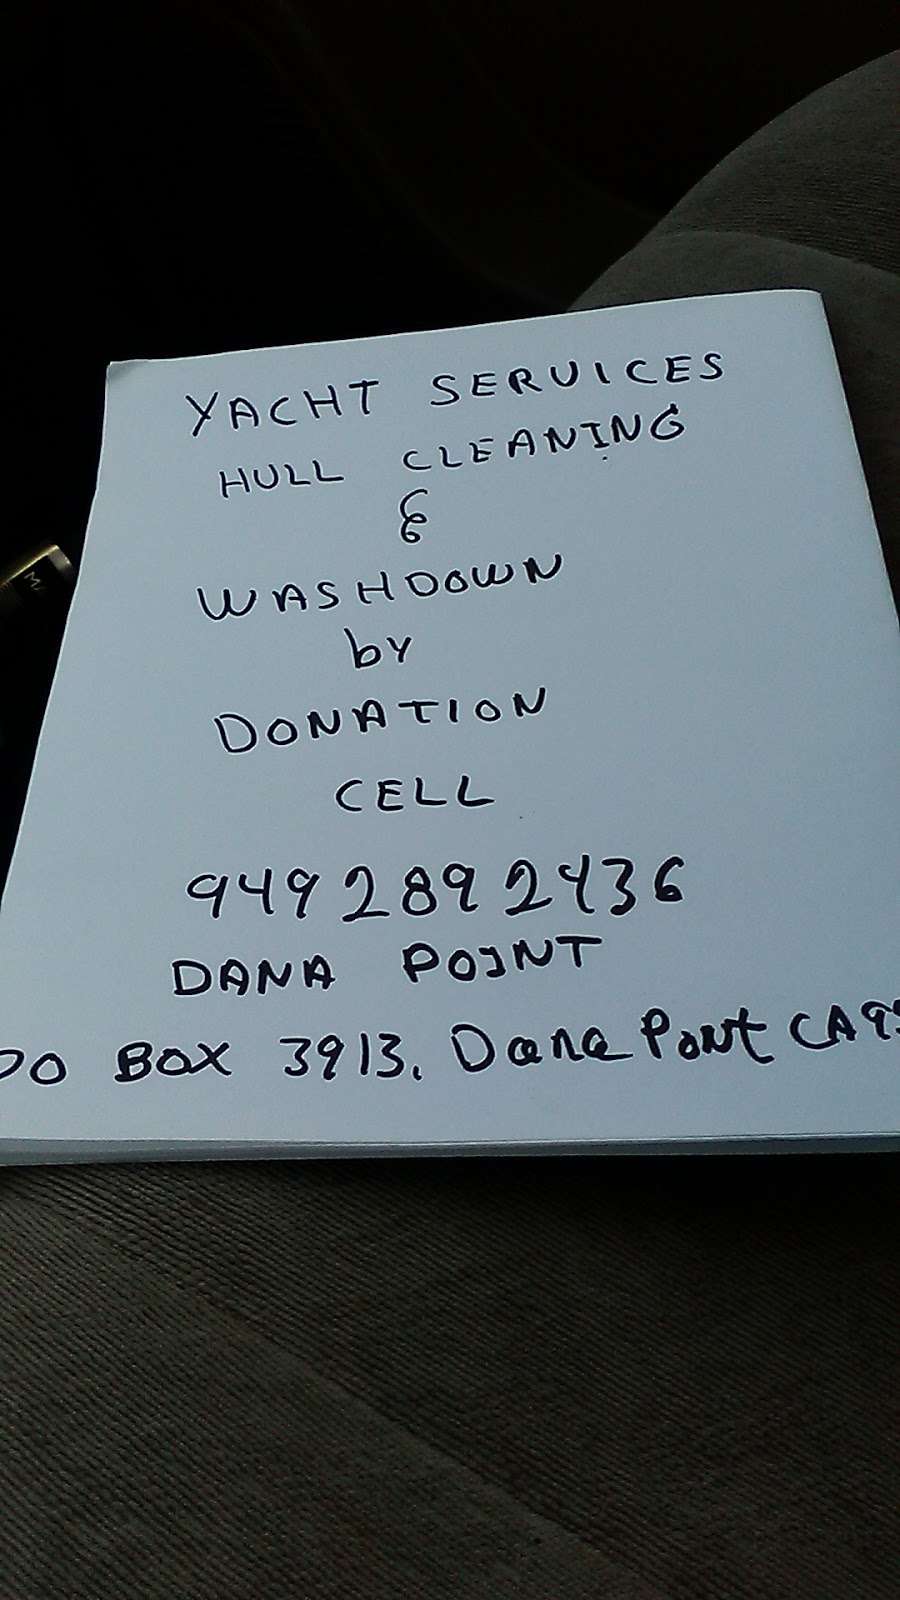 YACHT SERVICES
HULL CLEANING
&
WASHDOWN
by
DONATION
CELL
949 289 2436
DANA POINT
PO BOX 3913, Dana Point CA